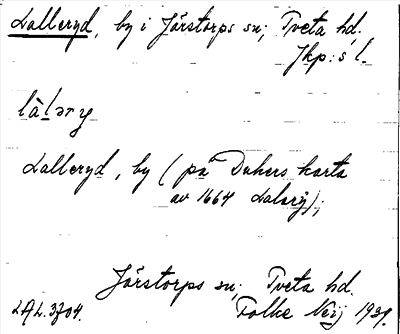 Lalleryd, by i Järstorps sn; Tveta hd.
Jkp:s l.
làləry
Lalleryd, by (på Duhers karta
av 1664 Lalerÿ);
Järstorps sn; Tveta hd.
LAL. 3704. Folke Neij 1939.